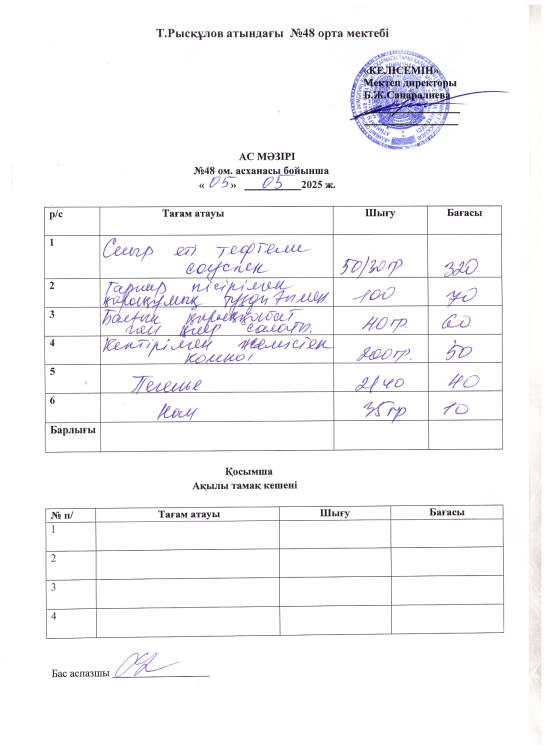 Т.Рысқұлов атындағы №48 орта мектебі
«КЕЛІСЕМІН»
Мектеп директоры
Б.Ж.Сапаралиева
АС МӘЗІРІ
№48 ом. асханасы бойынша
« 05 » 05 2025 ж.
р/с Тағам атауы Шығу Бағасы
1 Сиыр еті тефтели
соуспен 50/30гр 320
2 Гарнир пісірілген
қарақұмық 100 70
3 Балғын қырыққабат
пен қияр салаты. 40гр. 60
4 Кептірілген жемістен
компот 200гр. 50
5 Печенье 2/40 40
6 Нан 35гр 10
Барлығы
Қосымша
Ақылы тамақ кешені
№ п/ Тағам атауы Шығу Бағасы
1
2
3
4
Бас аспазшы